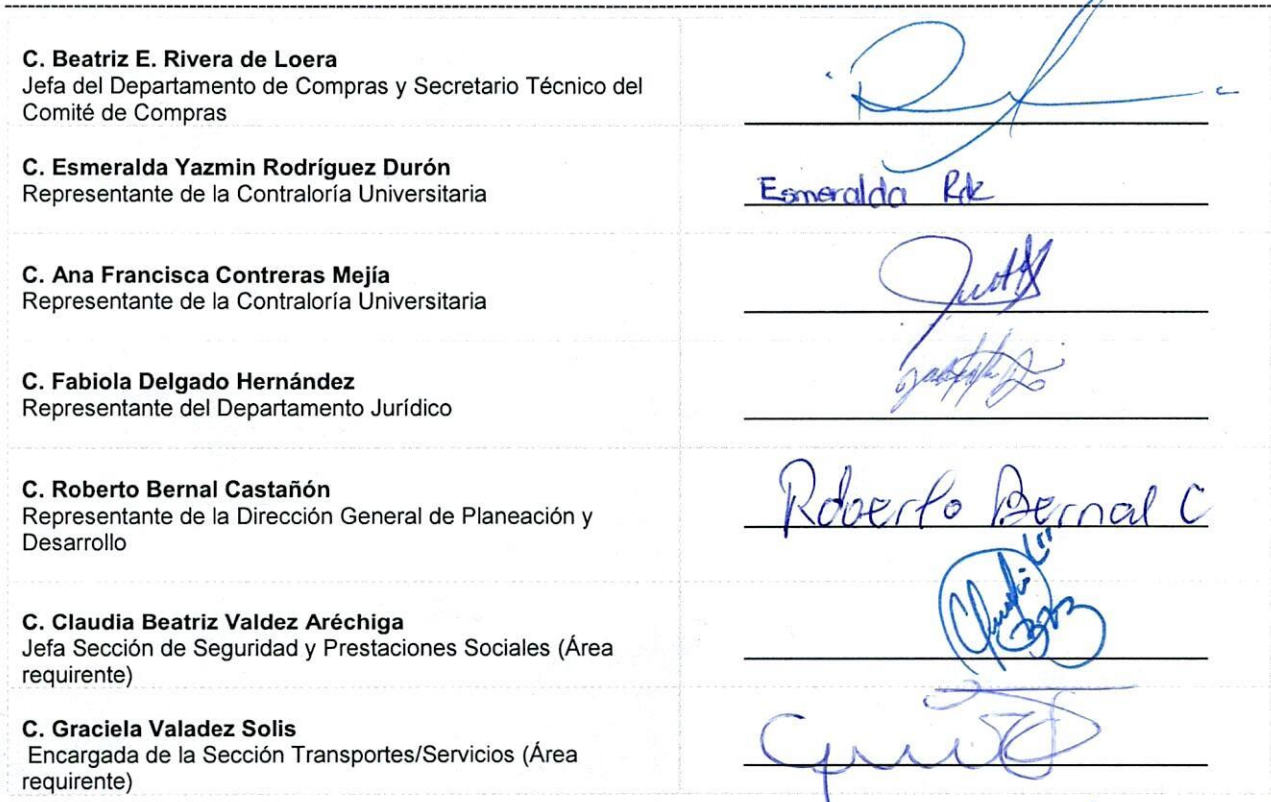 C. Beatriz E. Rivera de Loera
Jefa del Departamento de Compras y Secretario Técnico del
Comité de Compras
C. Esmeralda Yazmin Rodríguez Durón
Representante de la Contraloría Universitaria
Esmeralda
C. Ana Francisca Contreras Mejía
Representante de la Contraloría Universitaria
C. Fabiola Delgado Hernández
Representante del Departamento Jurídico
C. Roberto Bernal Castañón
Representante de la Dirección General de Planeación y
Desarrollo
Roberto Bernal C
C. Claudia Beatriz Valdez Aréchiga
Jefa Sección de Seguridad y Prestaciones Sociales (Área
requirente)
C. Graciela Valadez Solis
Encargada de la Sección Transportes/Servicios (Área
requirente)